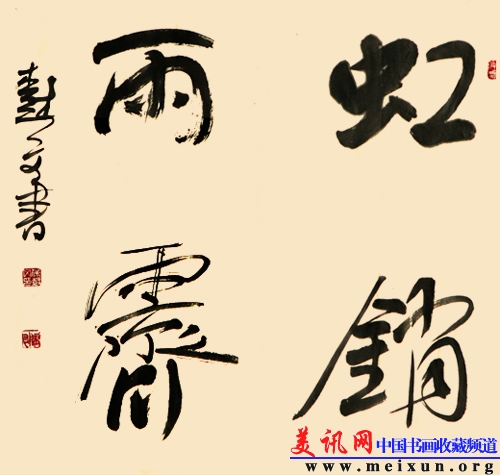 虹銷
雨霽
美讯网 中国书画收藏频道
www.meixun.org